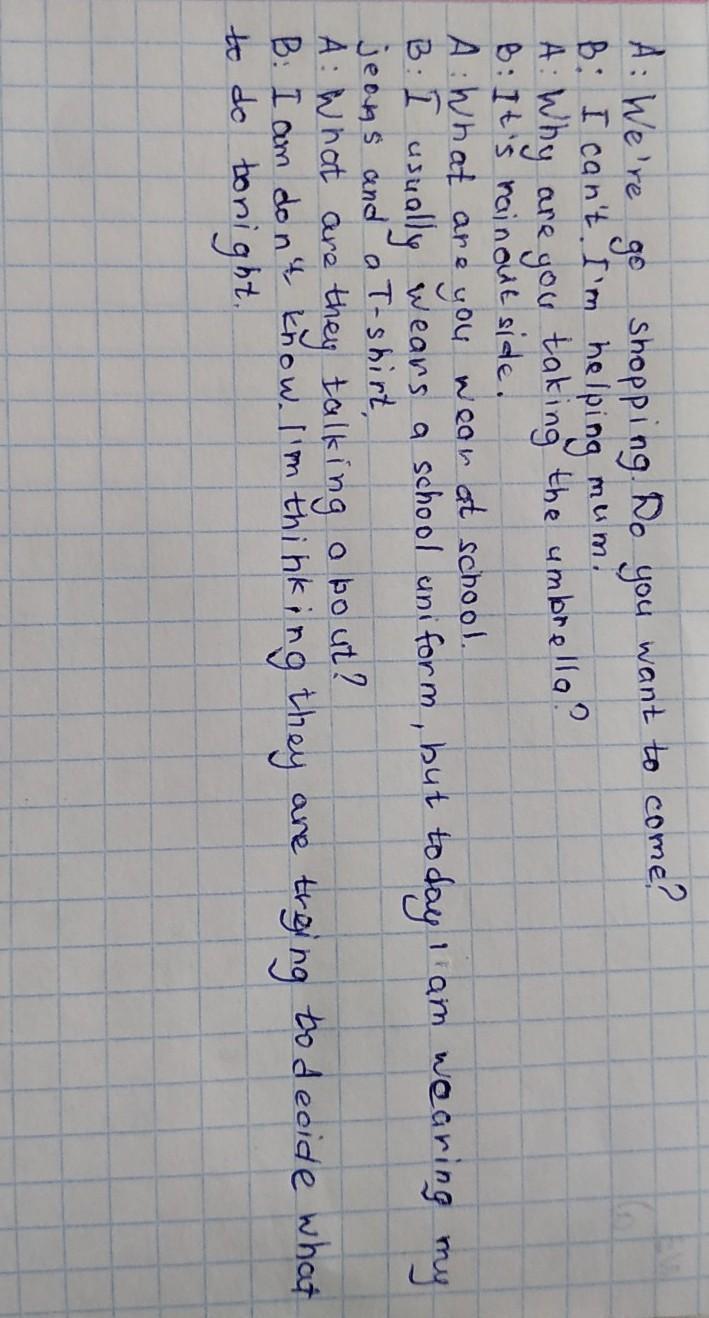 A: We're go shopping. Do you want to come?
B: I can't. I'm helping mum.
A: Why are you taking the umbrella?
B: It's rain outside.
A: What are you wear at school.
B: I usually wears a school uniform, but today I am wearing my
jeans and a T-shirt.
A: What are they talking about?
B: I am don't know. I'm thinking they are trying to decide what
to do tonight.